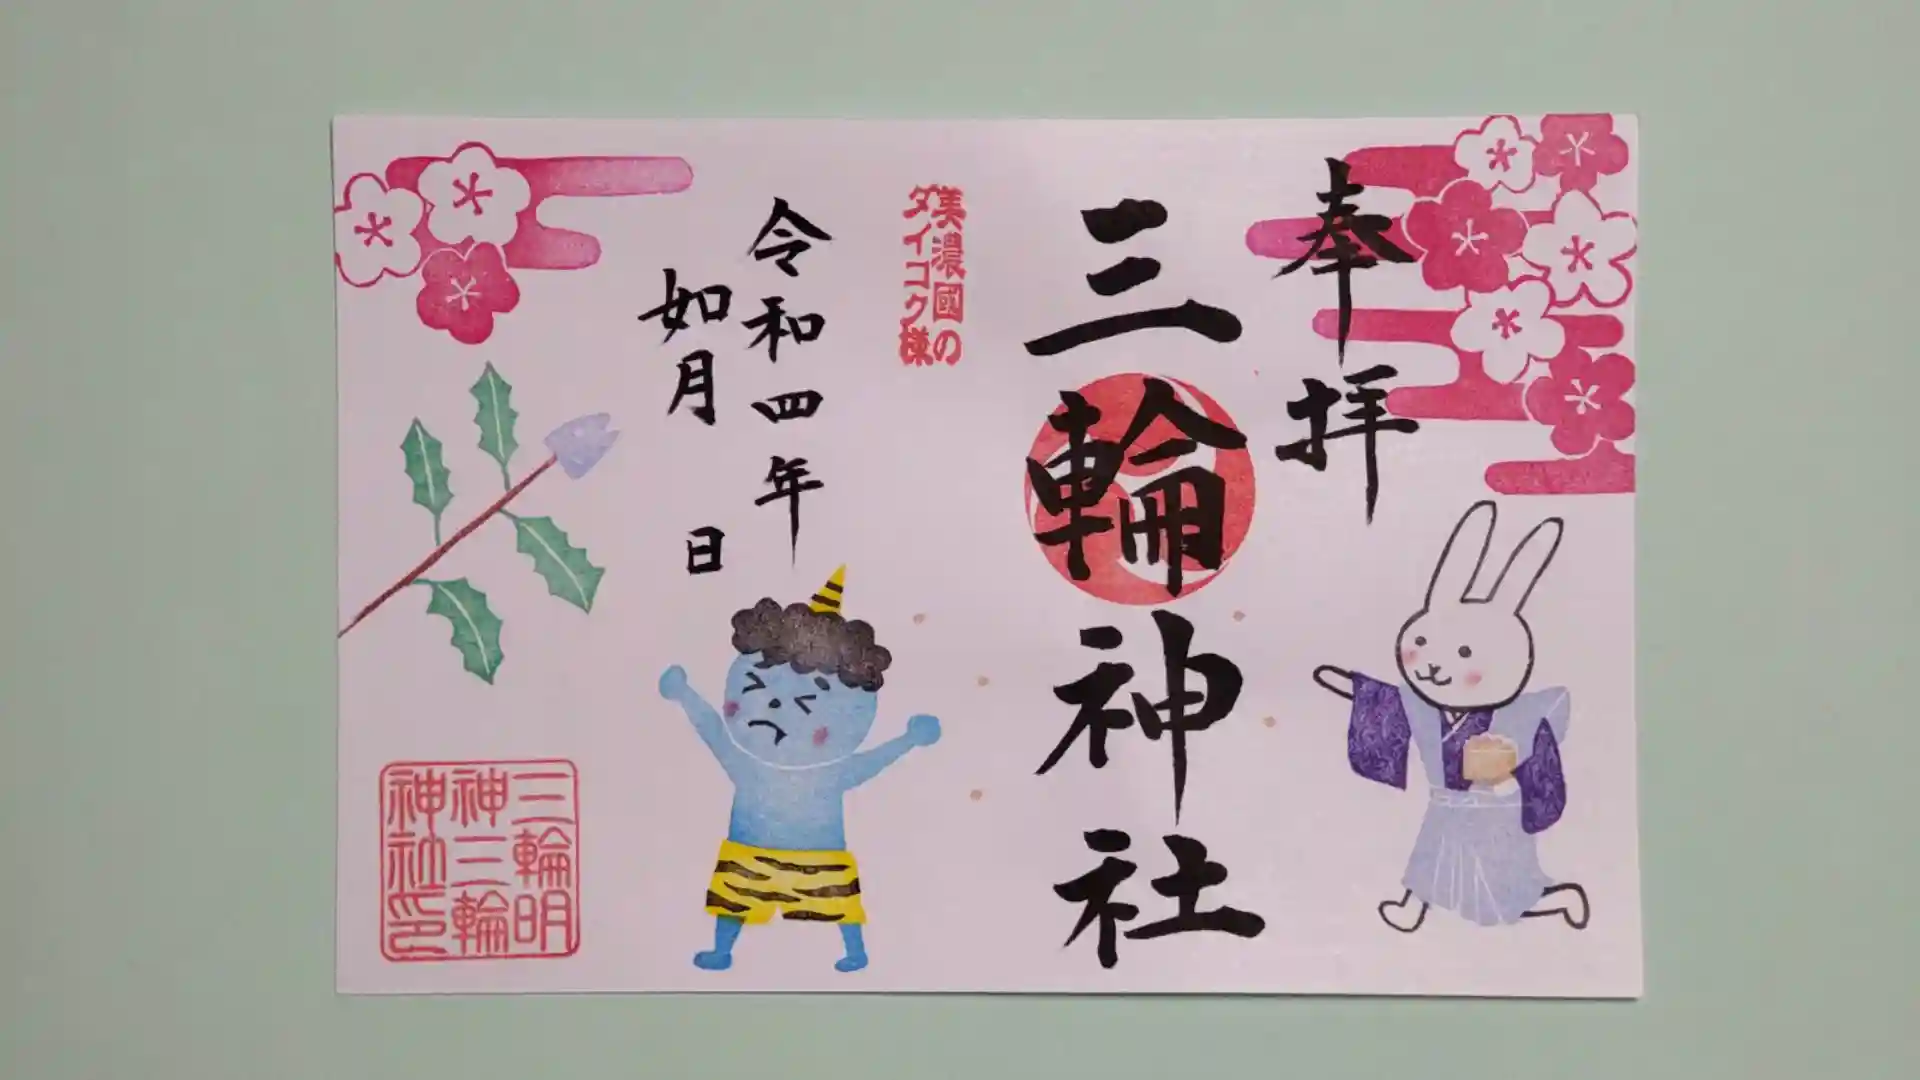 奉拝
三輪神社
美濃國の
ダイコク様
令和四年
如月 日
三輪明
神三輪
神社印